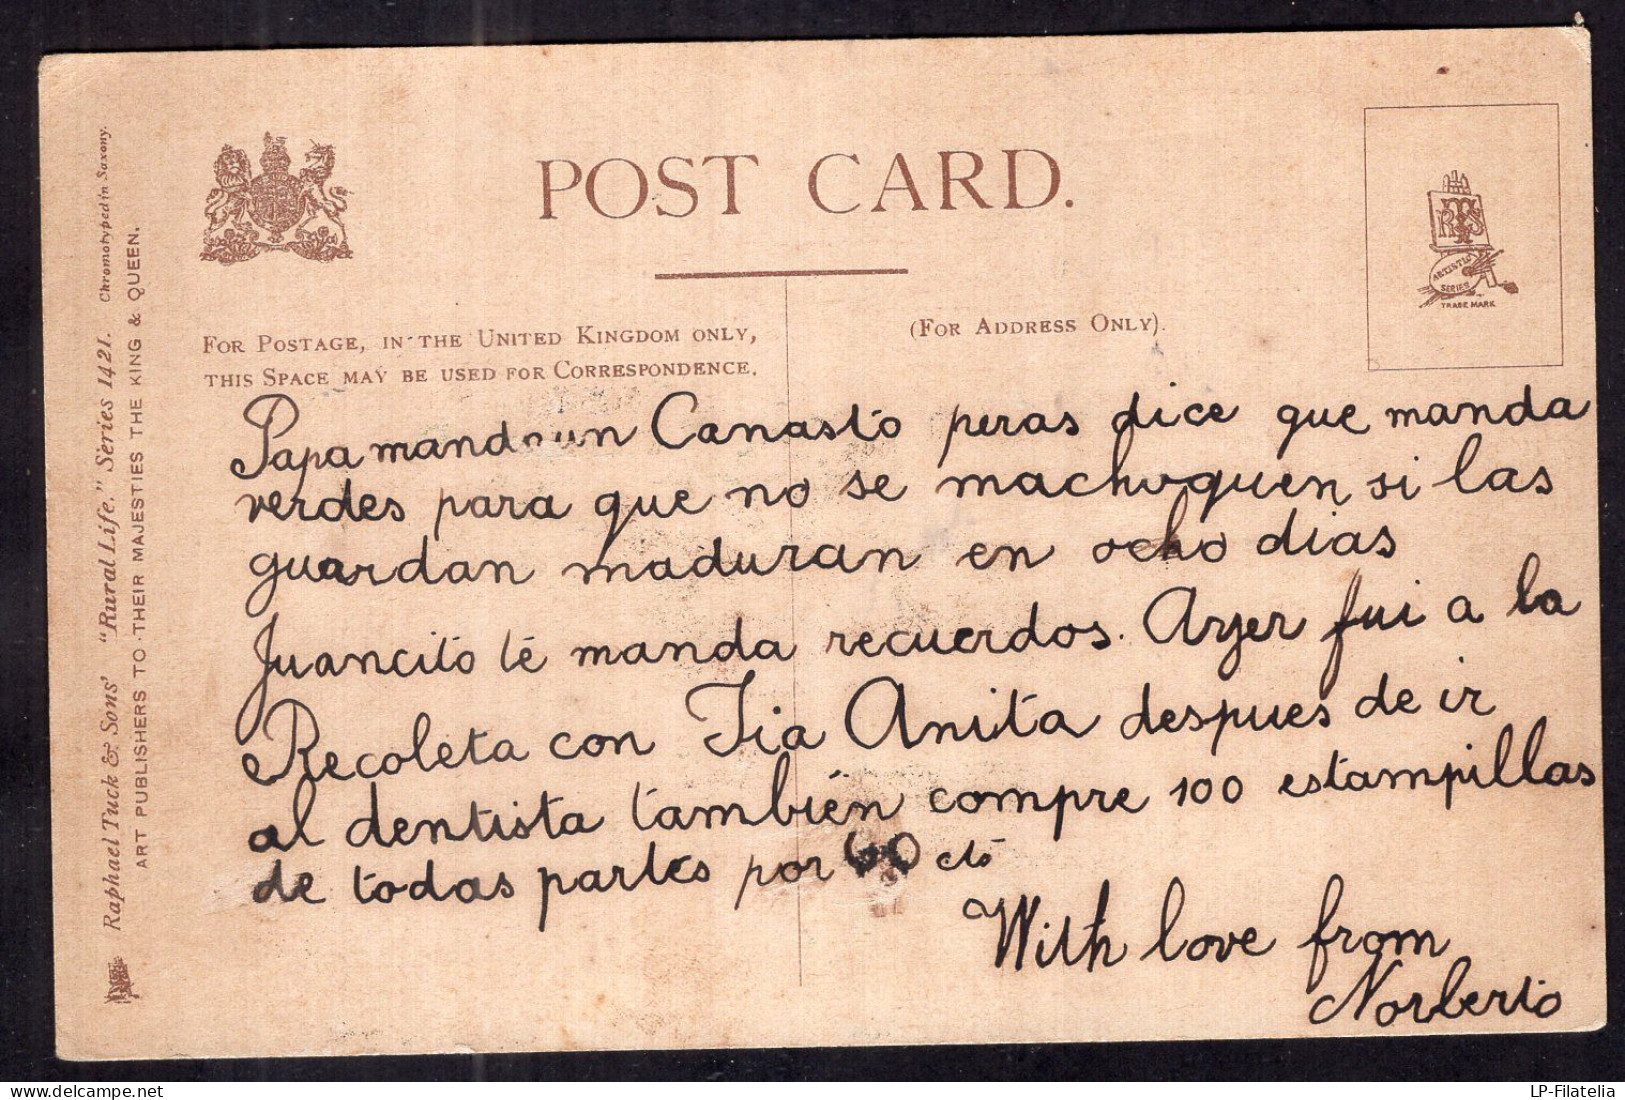 POST CARD.
FOR POSTAGE, IN THE UNITED KINGDOM ONLY,
THIS SPACE MAY BE USED FOR CORRESPONDENCE.
(FOR ADDRESS ONLY).
RTS
ARTISTIC
SERIES
TRADE MARK
Raphael Tuck & Sons' "Rural Life." Series 1421. Chromotyped in Saxony.
ART PUBLISHERS TO THEIR MAJESTIES THE KING & QUEEN.
Papa manda un Canasto peras dice que manda
verdes para que no se machuquen si las
guardan maduran en ocho dias
Juancito te manda recuerdos. Ayer fui a la
Recoleta con Tia Anita despues de ir
al dentista también compre 100 estampillas
de todas partes por 60 cts
With love from
Norberto
www.delcampe.net
LP-Filatelia